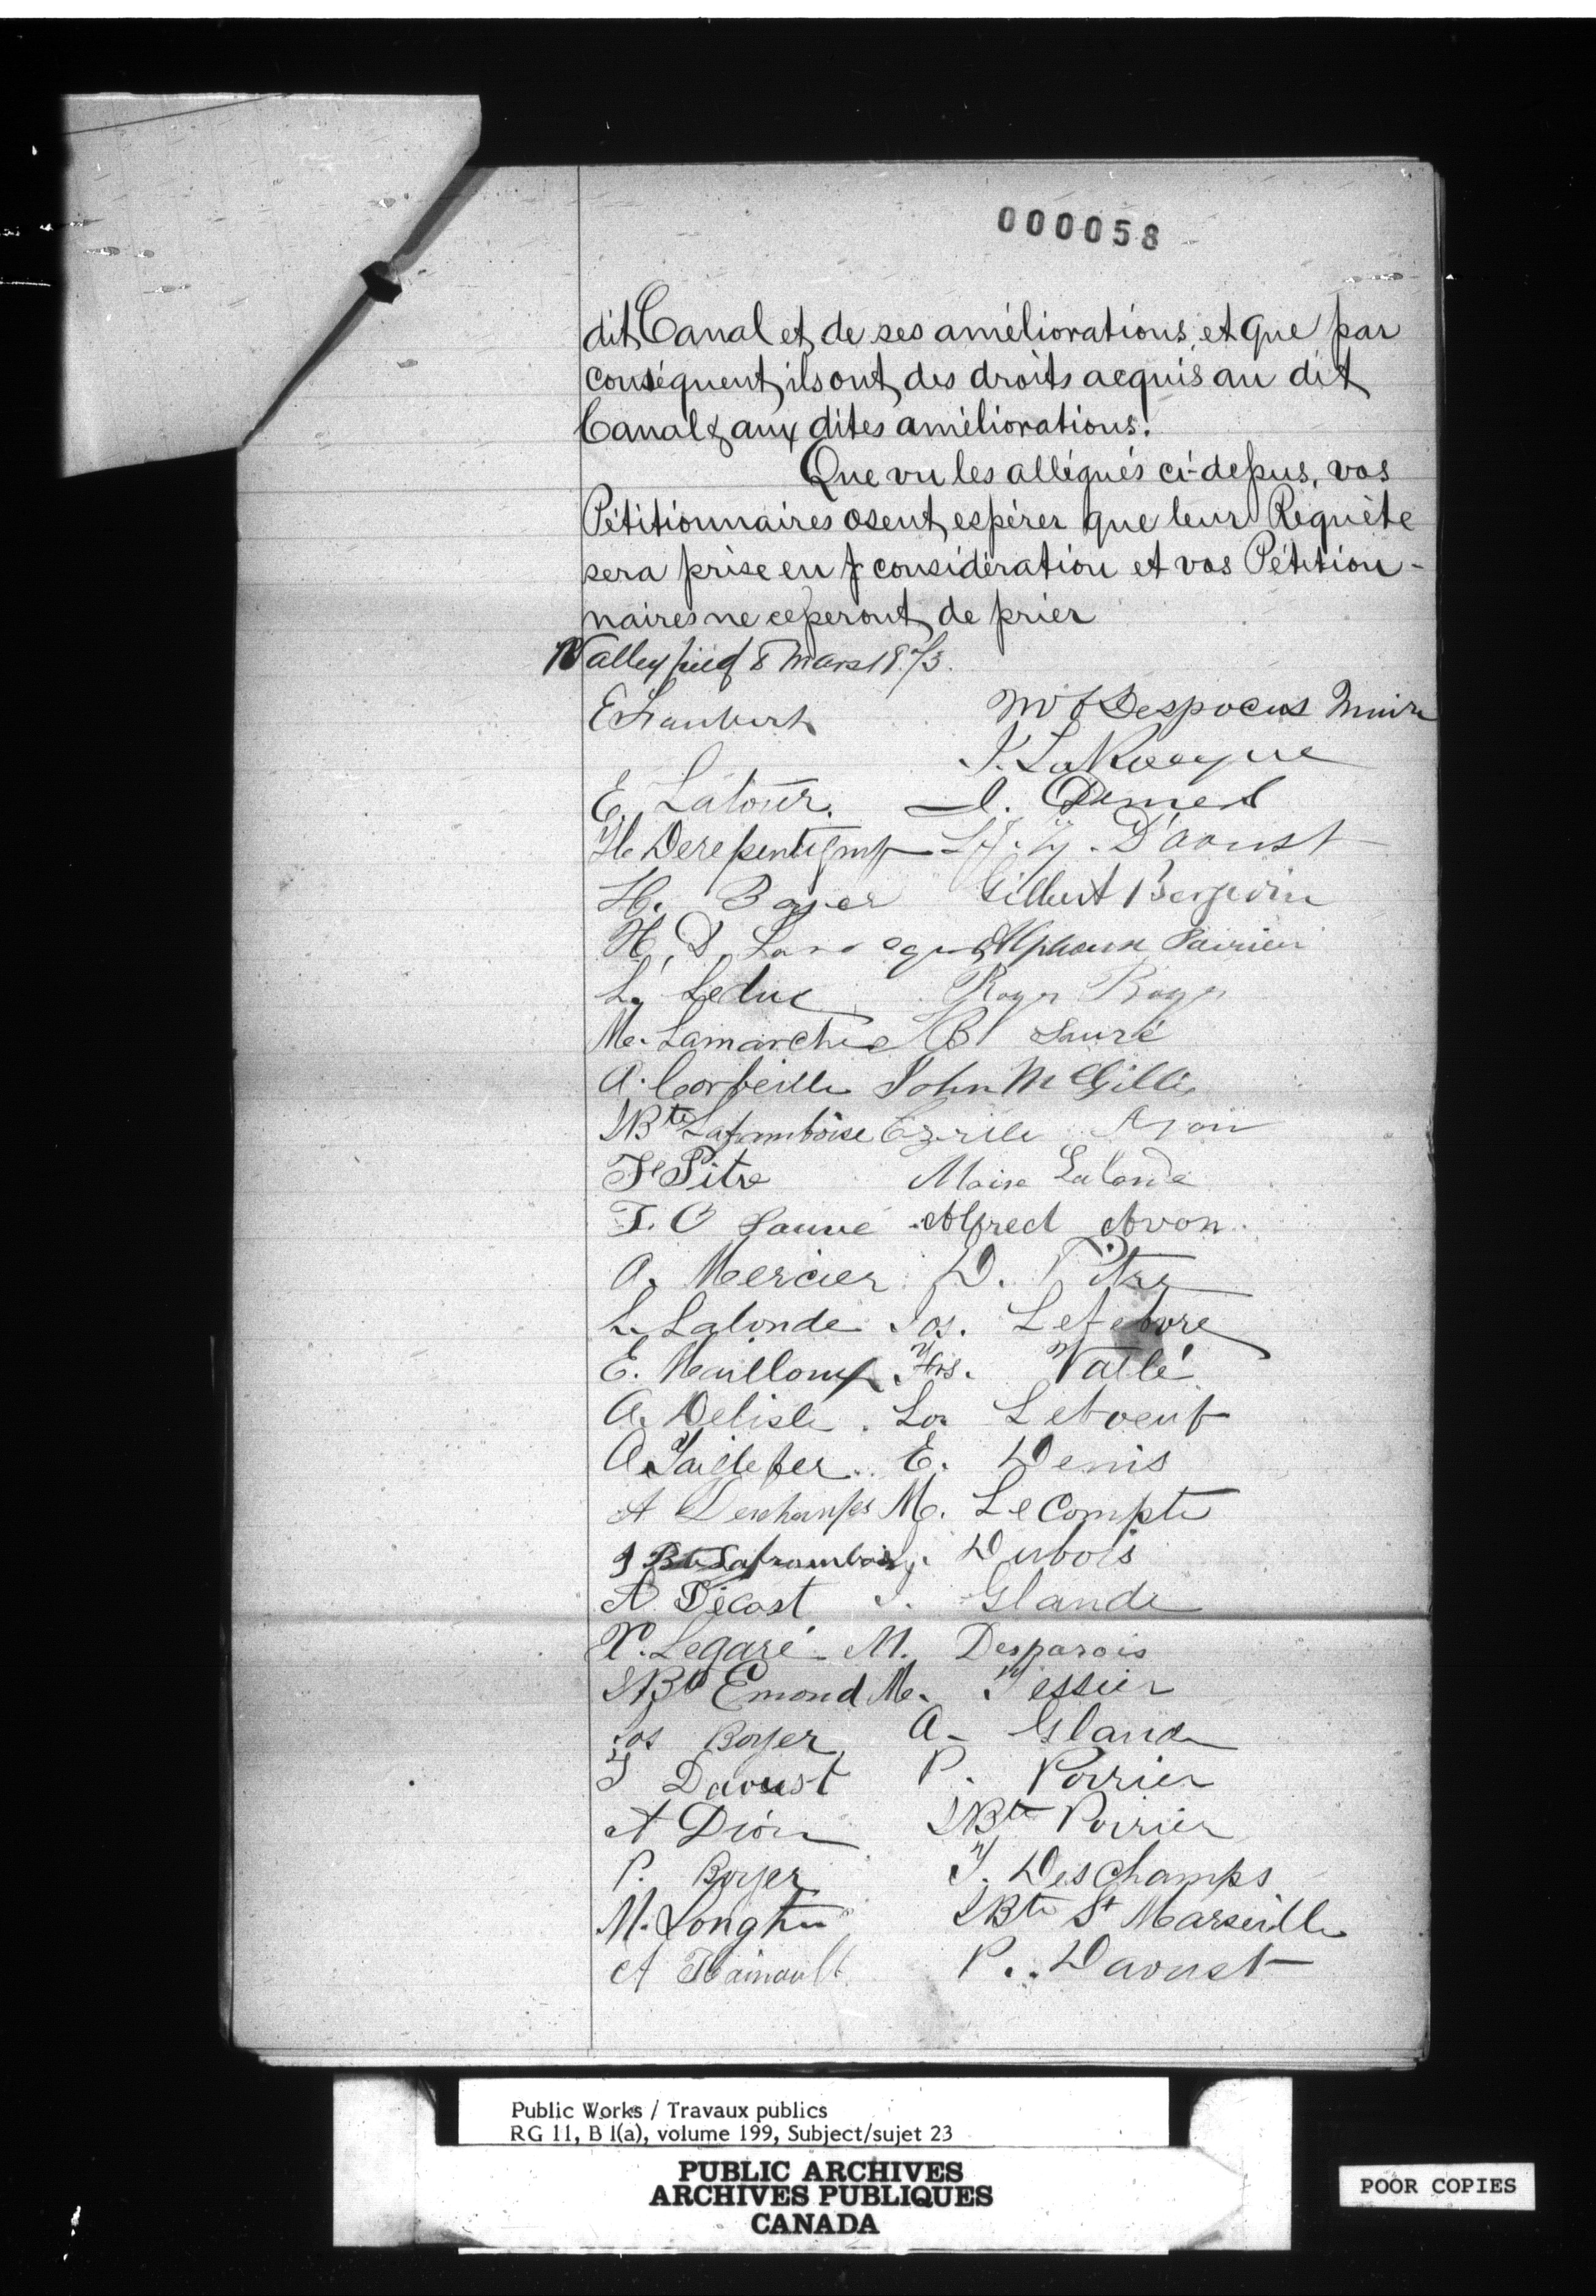 000058
dit Canal et de ses améliorations, et que par
conséquent, ils ont des droits acquis au dit
Canal & aux dites améliorations.
Que vu les allégués ci-dessus, vos
Pétitionnaires osent espérer que leur Requête
sera prise en considération et vos Pétition-
naires ne cesseront de prier
Valleyfield 8 Mars 1873.
J. LaRocque
E. Latour.
H. Derepentigny D'aoust
H. Boyer Gilbert Bergevin
H, D, Alphonse Poirier
L. Leduc
M. Lamarche
A. Corbeille John McGillis
JBte Laframboise
Pitre Moise Lalonde
T. O Sauvé Alfred Avon.
A. Mercier D. Pitre
L. Lalonde Jos. Lefebvre
E. Mailloux Frs. Vallé
A. Delisle Ls Leboeuf
A Taillefer E. Denis
A Deschamps M. LeCompte
J Bte Laframboise J. Dubois
A Décost J. Glande
X. Legaré M. Desparois
JBte Emond M. Tessier
Jos Boyer A. Glande
J Daoust P. Poirier
A Dion JBte Poirier
P. Boyer J. Deschamps
M. Longtin JBte St Marseille
A P. Daoust
Public Works / Travaux publics
RG 11, B 1(a), volume 199, Subject/sujet 23
PUBLIC ARCHIVES
ARCHIVES PUBLIQUES
CANADA
POOR COPIES